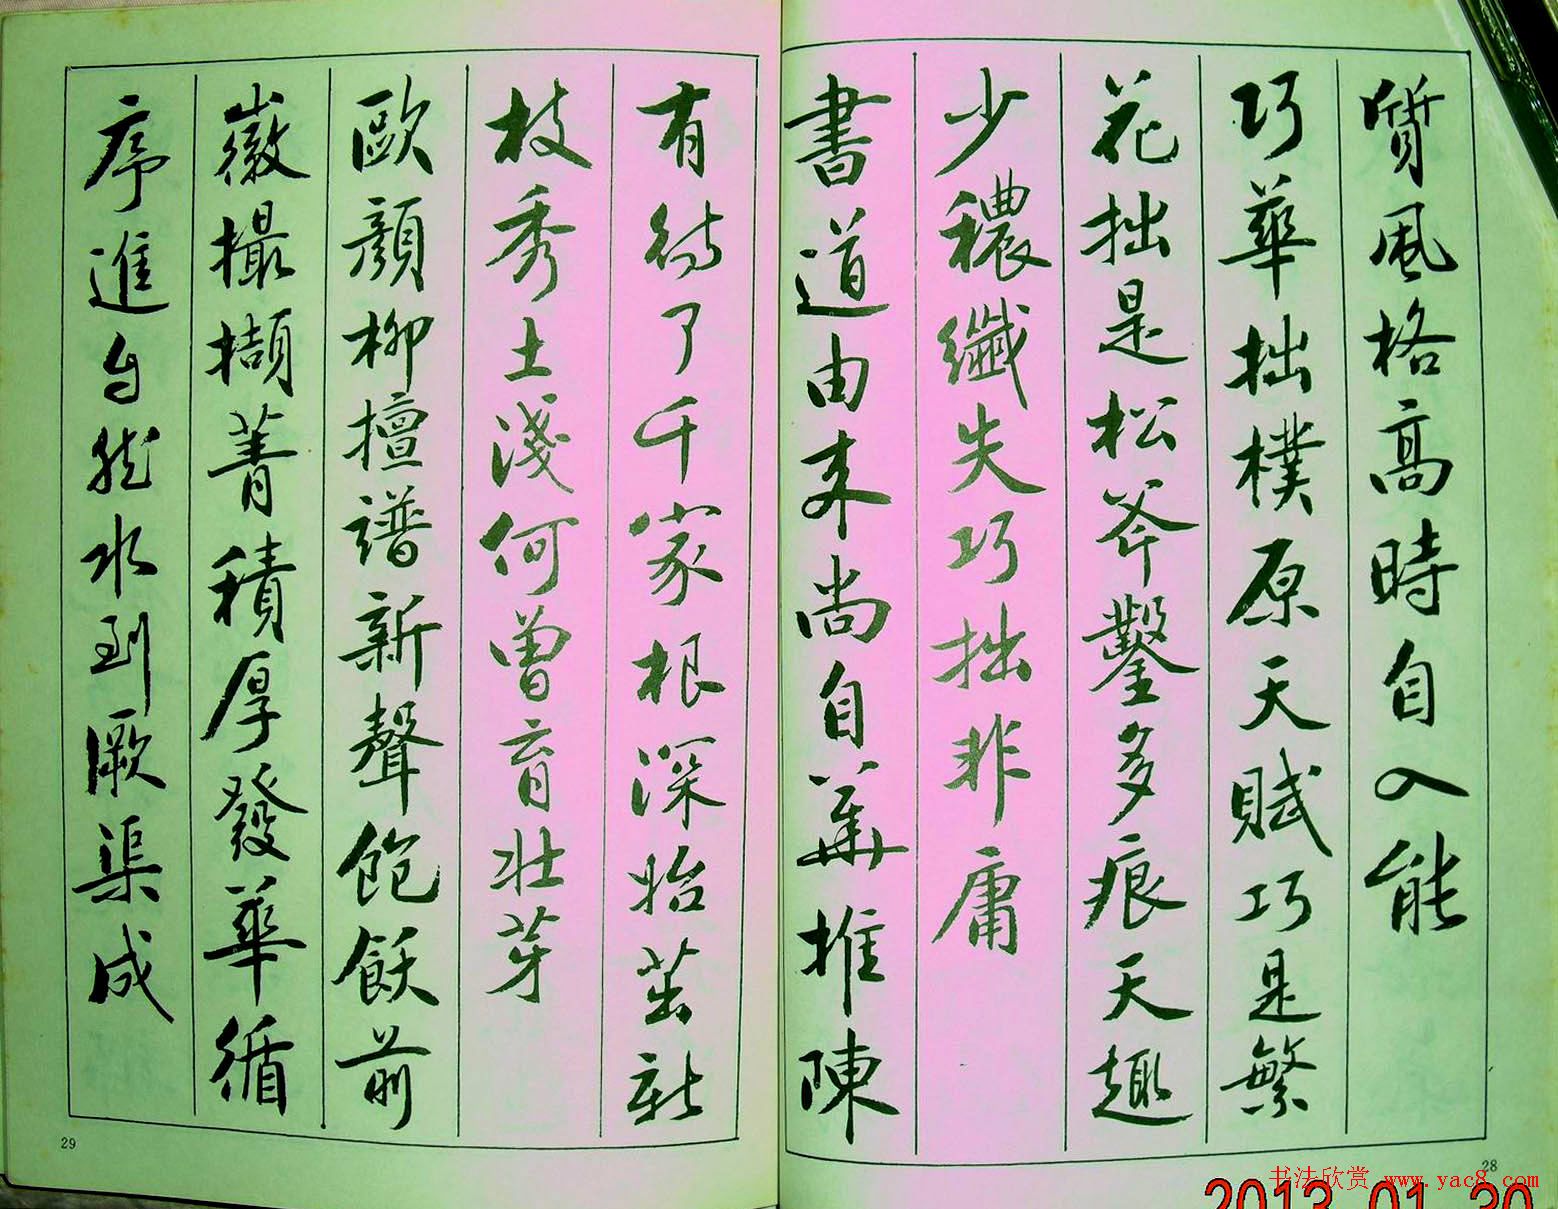 質風格高時自入能
巧華拙樸原天賦巧是繁
花拙是松斧鑿多痕天趣
少穠纖失巧拙非庸
書道由来尚自華推陳
有待了千家根深始茁新
枝秀土淺何曾育壯芽
歐顏柳擅譜新聲飽飫前
徽撮擷菁積厚發華循
序進自然水到厥渠成
28
29
书法欣赏 www.yac8.com
2013 01 30